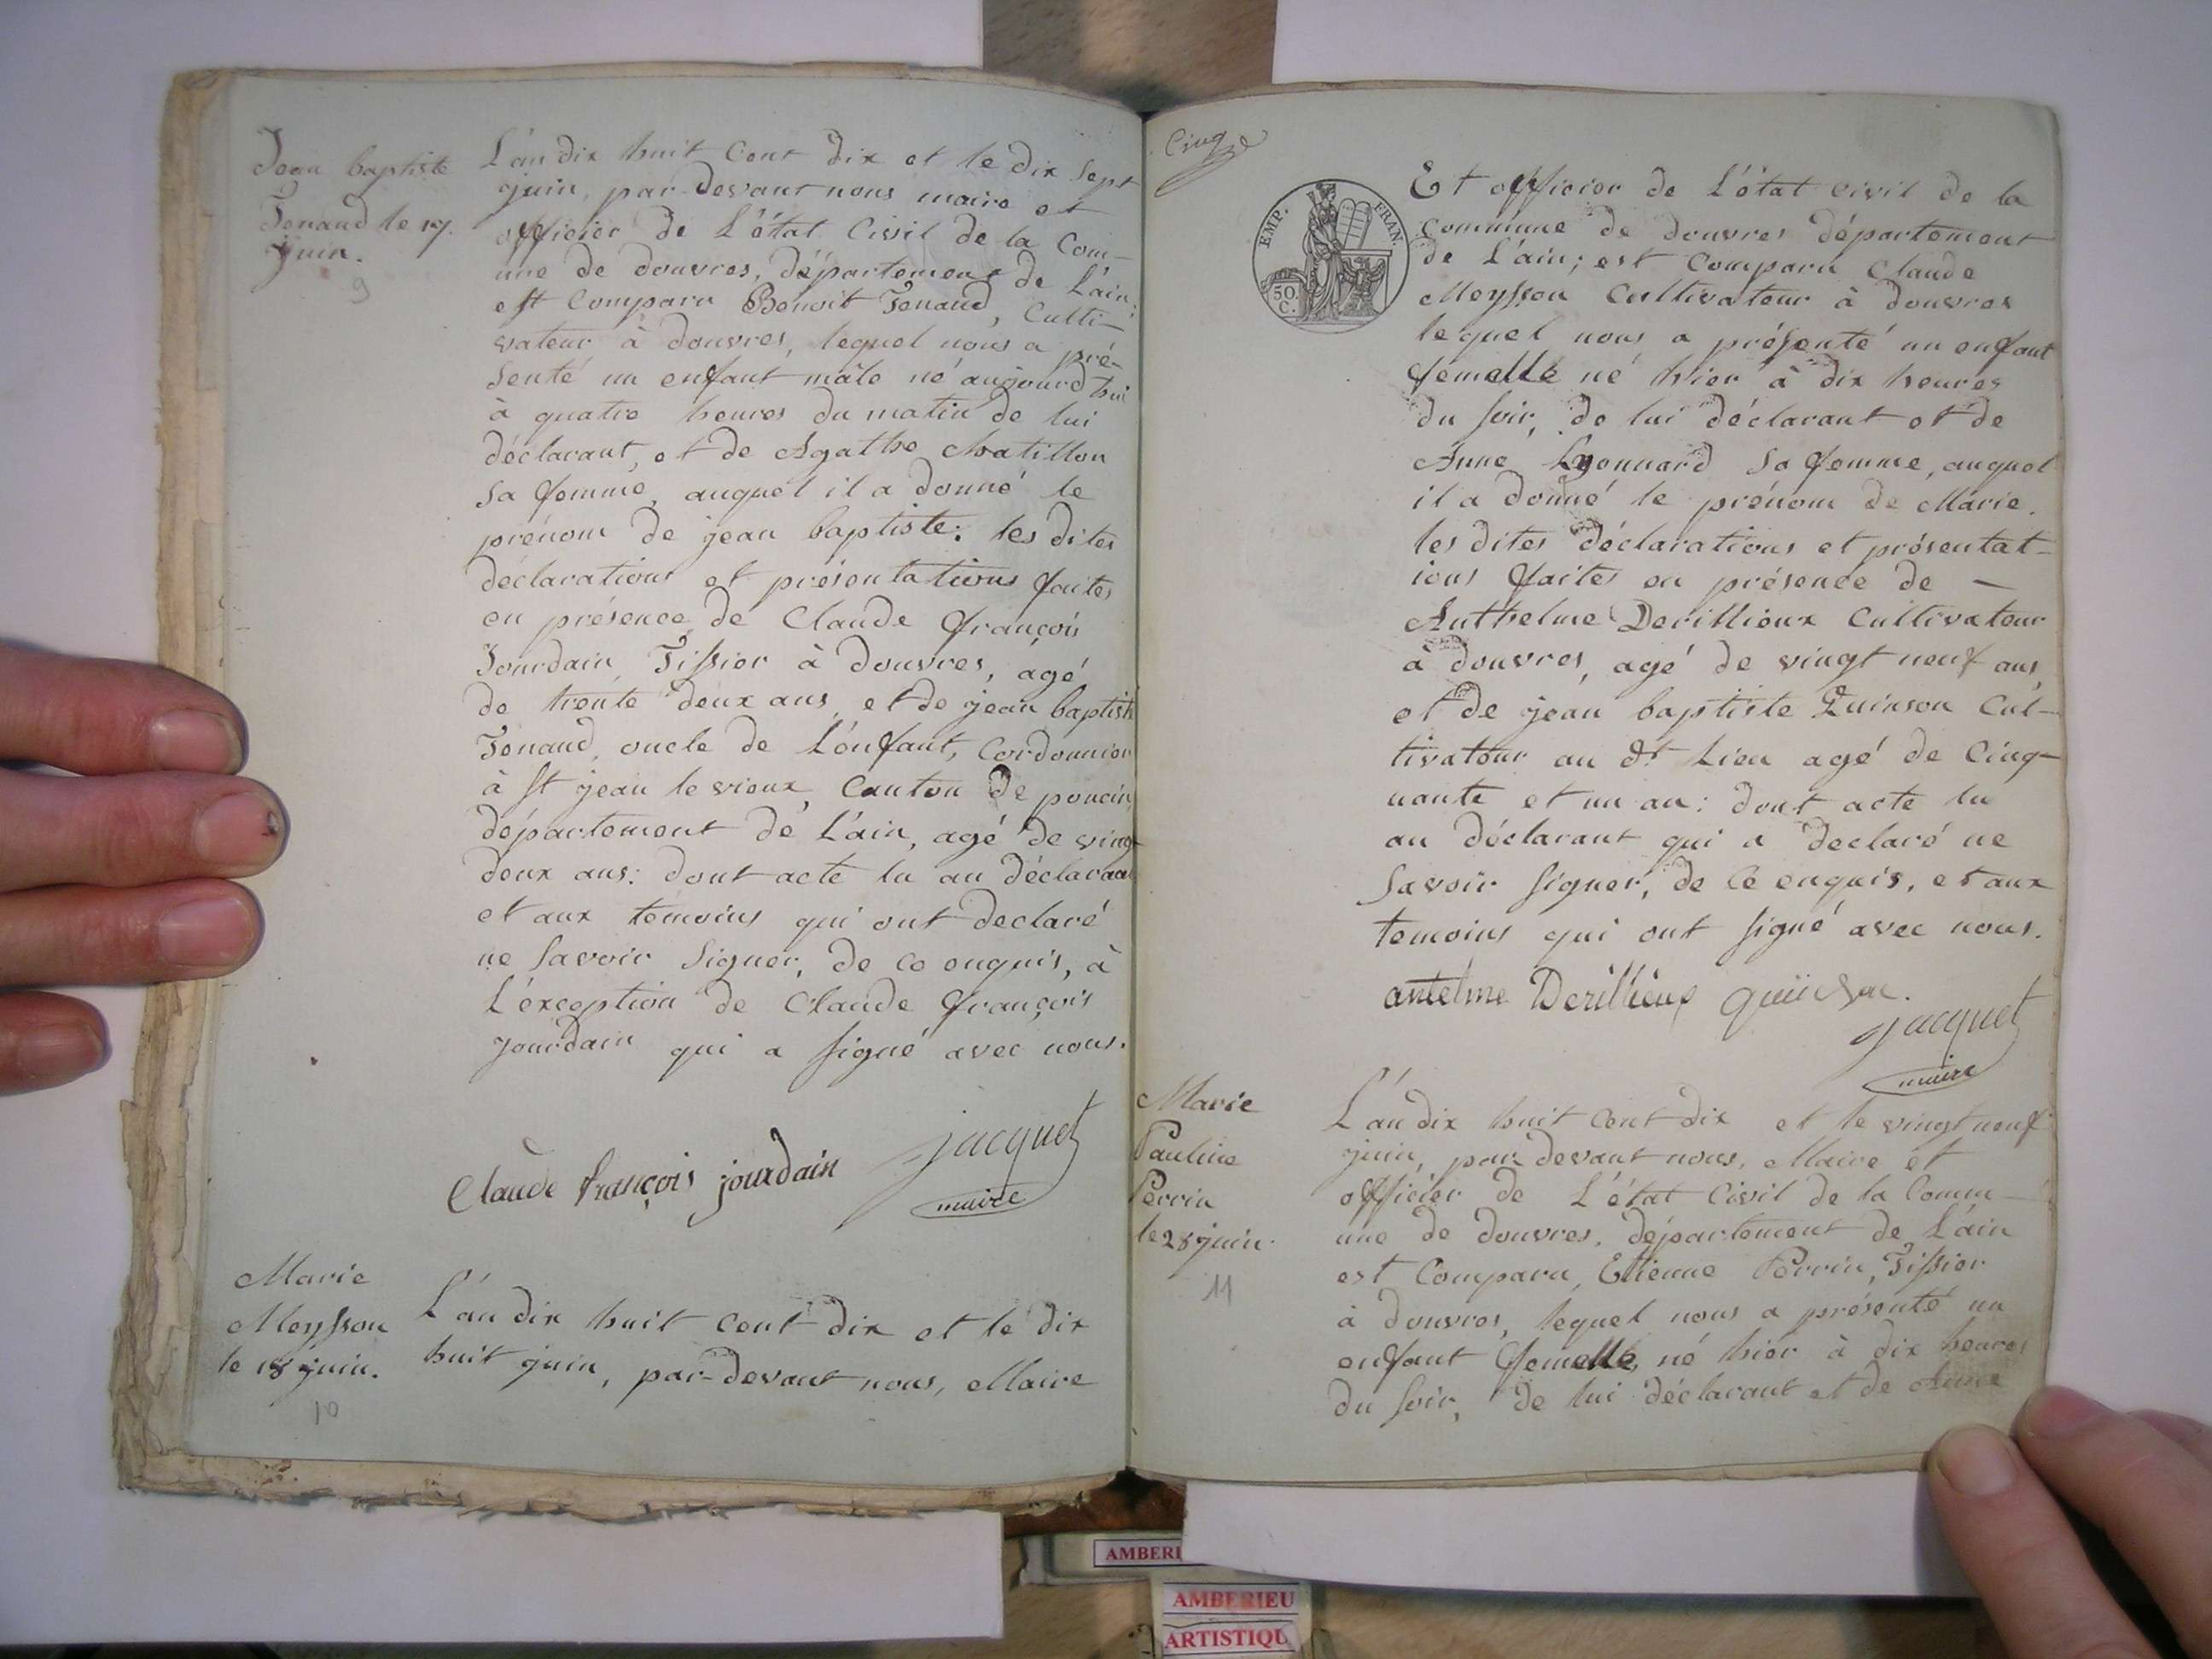 Jean baptiste
Tenaud le 17.
juin.
9
L'an dix huit cent dix et le dix sept
juin, par-devant nous maire et
officier de L'état Civil de la Com-
une de douvres, département de L'ain;
est Comparu Benoit Tenaud, Culti-
vateur à douvres, lequel nous a pré-
senté un enfant mâle né aujourd'hui
à quatre heures du matin de lui
déclarant, et de Agathe chatillon
sa femme, auquel il a donné le
prénom de jean baptiste: les dites
déclarations et présentations faites
en présence de Claude françois
Jourdain Tissier à douvres, agé
de trente deux ans, et de jean baptiste
Tenaud, oncle de L'enfant, Cordonnier
à St jean le vieux, Canton de poncin,
département de L'ain, agé de vingt
deux ans: dont acte lu au déclarant
et aux temoins qui ont declaré
ne savoir signer, de ce enquis, à
L'exception de Claude françois
jourdain qui a signé avec nous.
Claude françois jourdain
jacquet
maire
Marie
Meysson
le 18 juin.
10
L'an dix huit cent dix et le dix
huit juin, par-devant nous, Maire
Cinq
EMP. FRAN.
50.
C.
Et officier de L'état civil de la
commune de douvres département
de L'ain; est Comparu Claude
Meysson Cultivateur à douvres
lequel nous a présenté un enfant
femelle né hier à dix heures
du soir, de lui déclarant et de
Anne Lyonnard sa femme, auquel
il a donné le prénom de Marie.
les dites déclarations et présentat-
ions faites en présence de -
Anthelme Derillieux Cultivateur
à douvres, agé de vingt neuf ans,
et de jean baptiste Quinson Cul-
tivateur au dt Lieu agé de Cinq-
uante et un an: dont acte lu
au déclarant qui a declaré ne
savoir signer, de ce enquis, et aux
temoins qui ont signé avec nous.
antelme Derillieux
jacquet
maire
Marie
Pauline
Perrin
le 28 juin.
11
L'an dix huit cent dix et le vingt neuf
juin, par devant nous, Maire et
officier de L'état Civil de la Comm-
une de douvres, département de L'ain
est Comparu, Etienne Perrin, Tissier
à douvres, lequel nous a présenté un
enfant femelle, né hier à dix heures
du soir, de lui déclarant et de Anne
AMBERI
AMBERIEU
ARTISTIQU